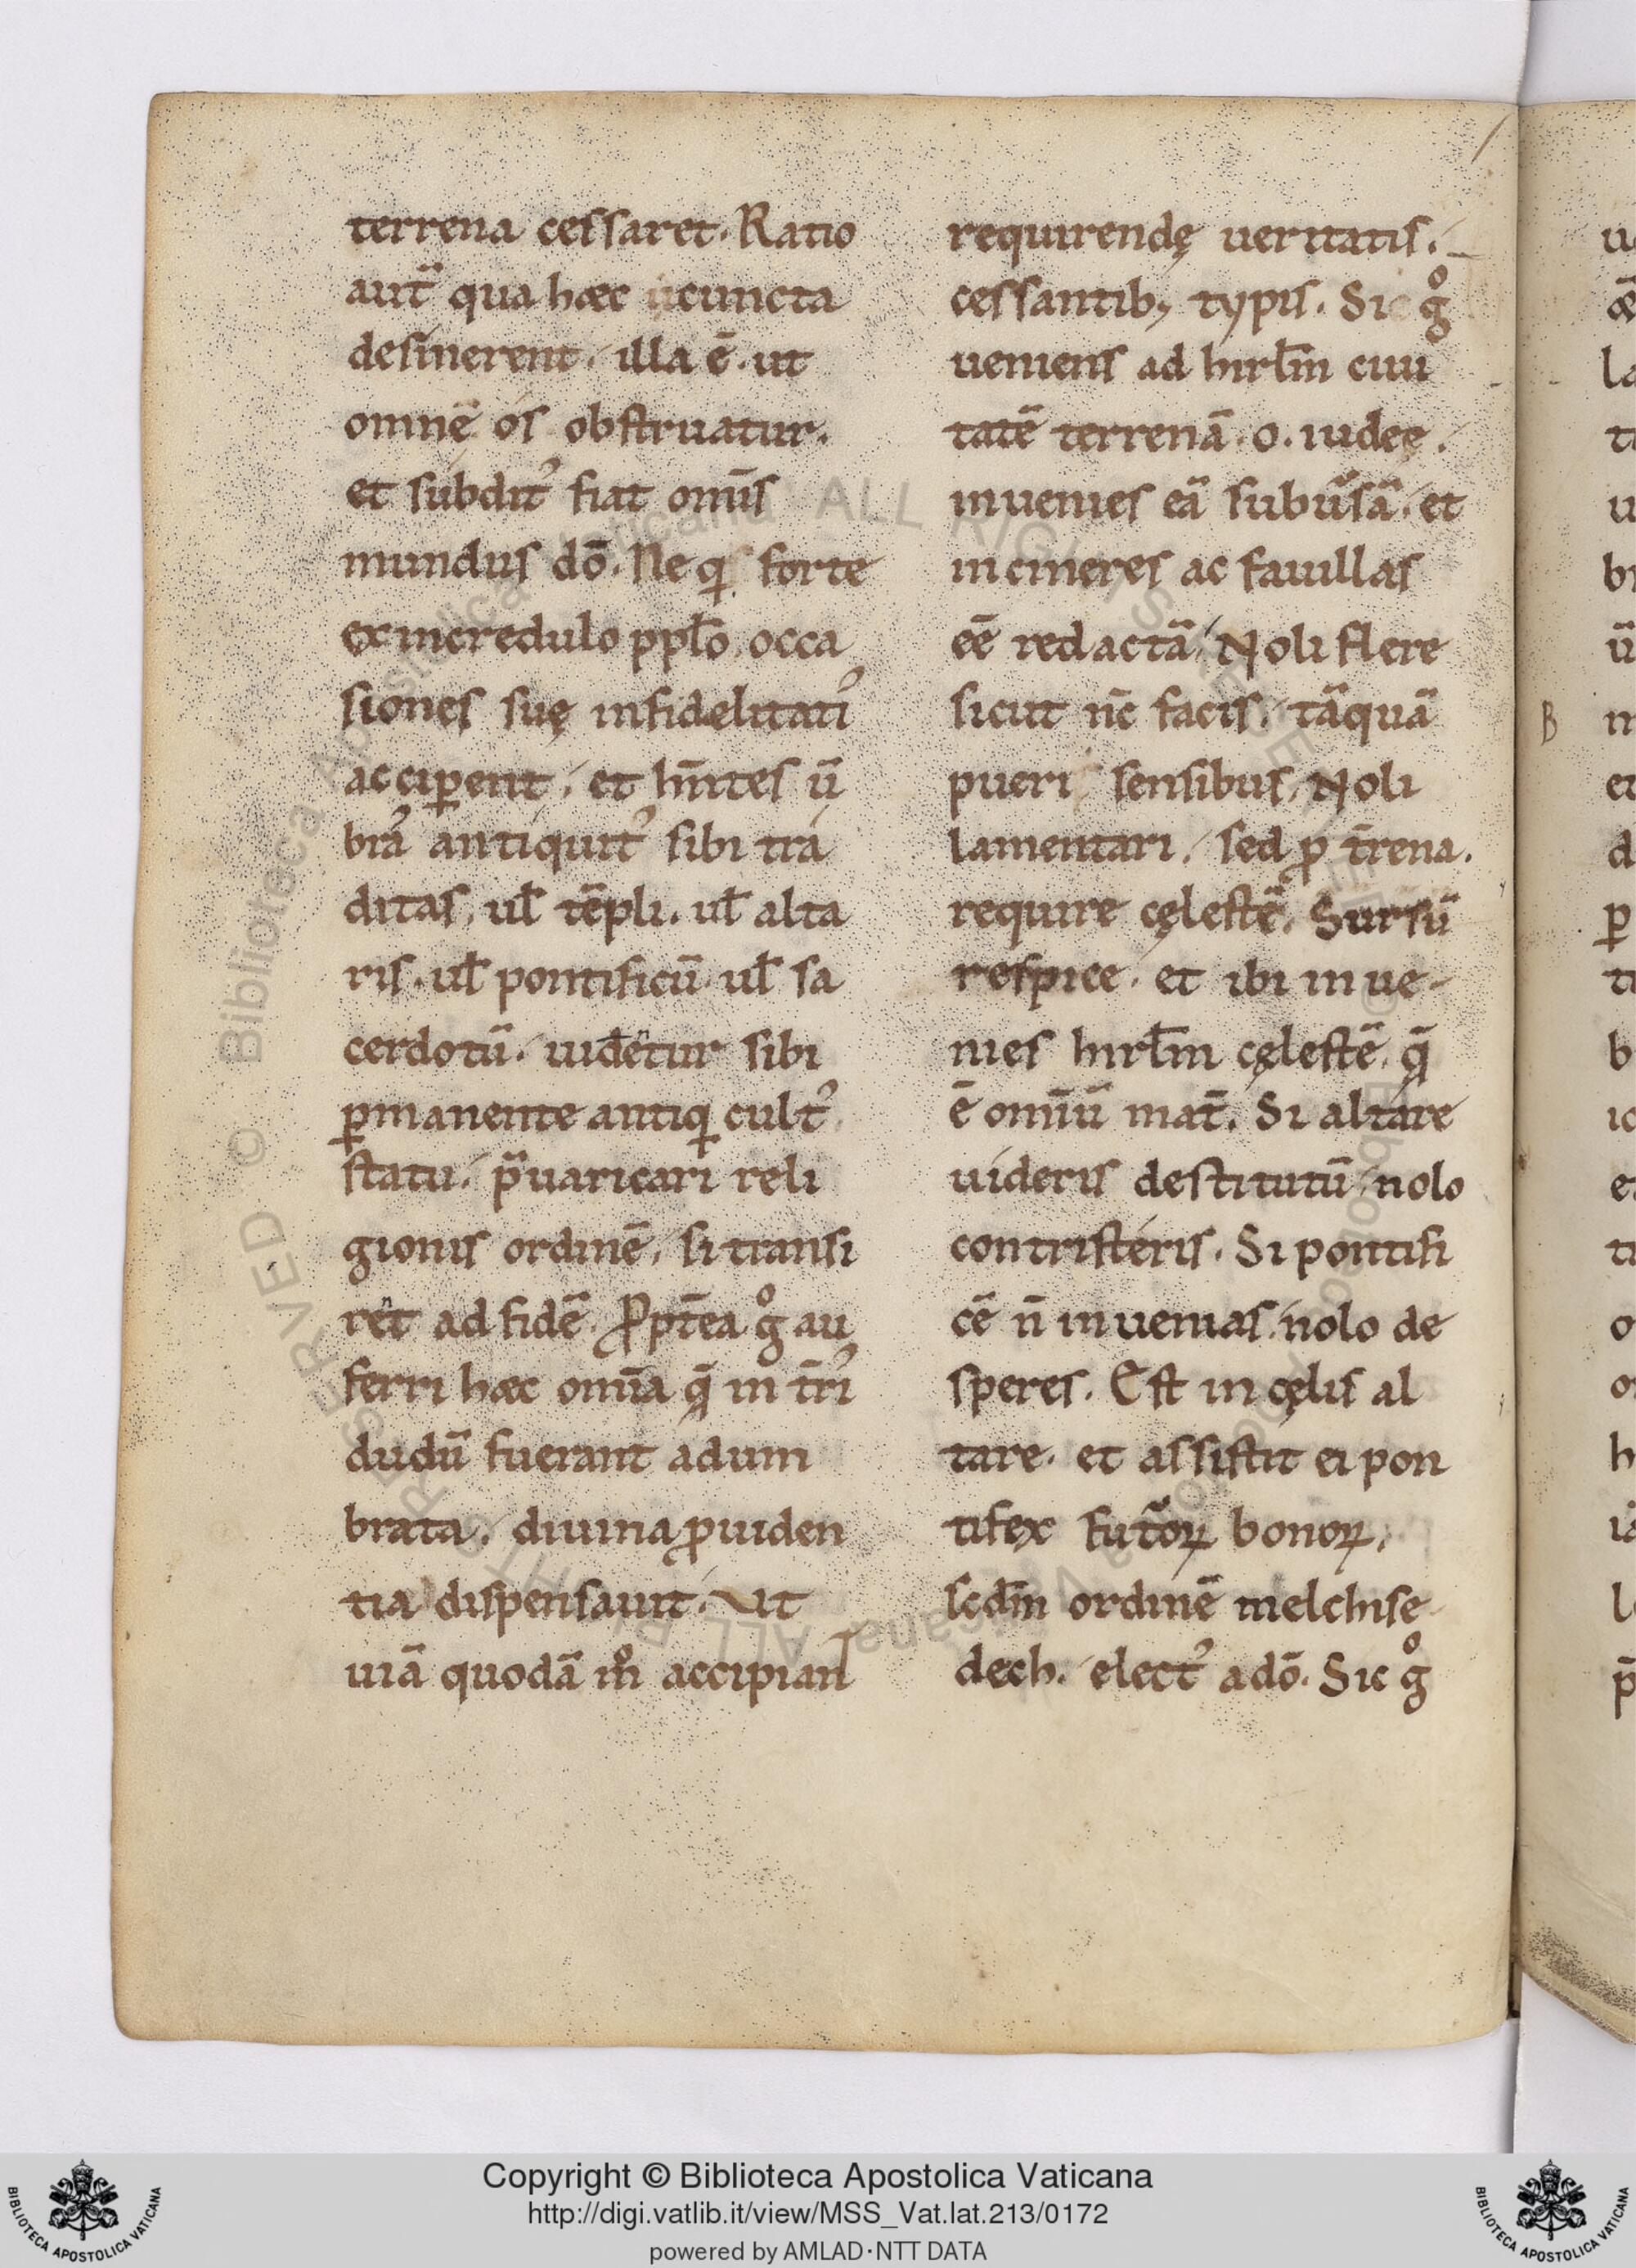 terrena cessaret. Ratio
aut̄ qua hæc cuncta
desinerent. illa ē. ut
omnē os obstruatur.
et subdit᾿ fiat om̄is
mundus dō. Ne qͥs forte
ex incredulo ppl̄o occa
siones suę infidelitati᾿
acciꝑent. et hn̄tes ū
bra᾿ antiquit᾿ sibi tra
ditas. ul̄ tēpli. ul̄ alta
ris. ul̄ pontificū. ul̄ sa
cerdotū. uidētur sibi
ꝑmanente antiqͥ cult᾿
statu. p̄uaricari reli
gionis ordinē. si transi
rēt ad fidē. Ꝓpt̄ea gͦ au
ferri hæc om̄ia q̄ in t̄ri᾿
dudū fuerant adum
brata. diuina ꝓuiden
tia dispensauit. Ut
uiā quodā mͦ accipian̄
requirendę ueritatis.
cessantib; typis. Sic gͦ
ueniens ad hirl̄m ciui
tatē terrenā. o. iudeę.
inuenies eā subūsā. et
in cineres ac fauillas
eē redactā. Noli flere
sicut nc̄ facis. tāquā
pueri sensibus. Noli
lamentari. sed ꝓ t̄rena.
require cęlestē. Sursū
respice. et ibi inue-
nies hirl̄m cęlestē. q̄
ē om̄iū mat̄. Si altare
uideris destitutū. nolo
contristeris. Si pontifi
cē n̄ inuenias. nolo de
speres. Est in cęlis al
tare. et assistit ei pon
tifex futōꝝ bonoꝝ.
scd̄m ordinē melchise
dech. elect᾿ a dō. Sic gͦ
B
Copyright © Biblioteca Apostolica Vaticana
http://digi.vatlib.it/view/MSS_Vat.lat.213/0172
powered by AMLAD·NTT DATA
BIBLIOTECA APOSTOLICA VATICANA
BIBLIOTECA APOSTOLICA VATICANA